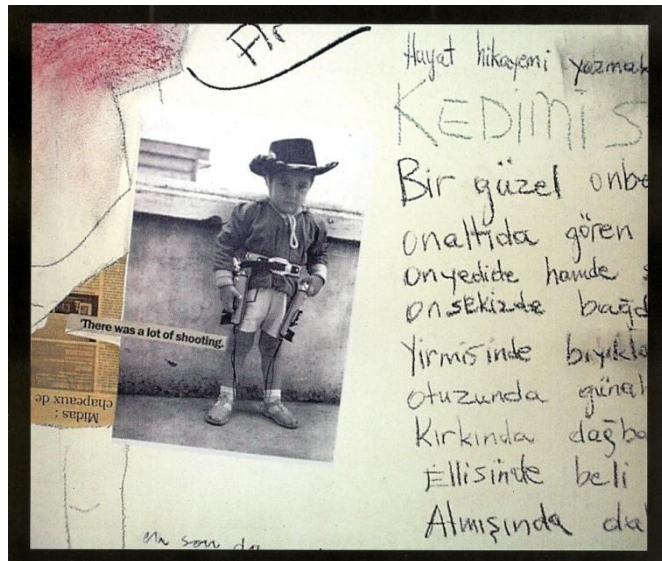 Hayat hikayemi yazmak
KEDİMİ S
Bir güzel onbe
onaltıda gören
onyedide hamde s
onsekizde bağd
Yirmisinde bıyıkla
otuzunda günah
Kırkında dağba
Ellisinde beli
Altmışında da
'There was a lot of shooting.
Midas :
chapeaux de
en son da